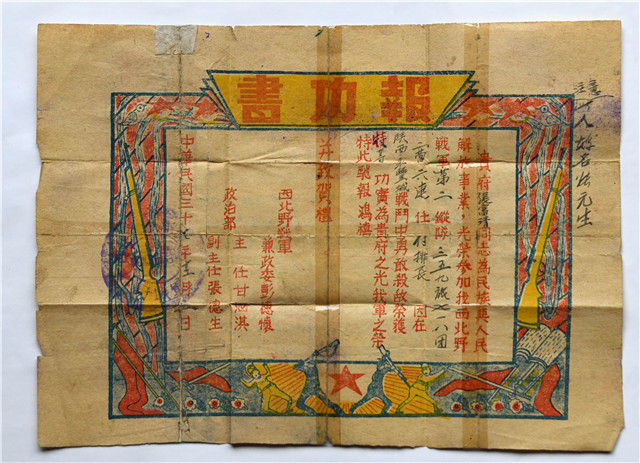 報功書
貴府張富清同志為民族與人民
解放事業，光榮參加我西北野
戰軍第二縱隊三五九旅七一八團
六連 任 付排長 因在
陝西永豐城戰鬥中勇敢殺敵榮獲
特等功實為貴府之光我軍之榮
特此馳報鴻禧
并致賀禮
西北野戰軍
兼政委彭德懷
政治部
主任甘泗淇
副主任張德生
中華民國三十七年十二月 日